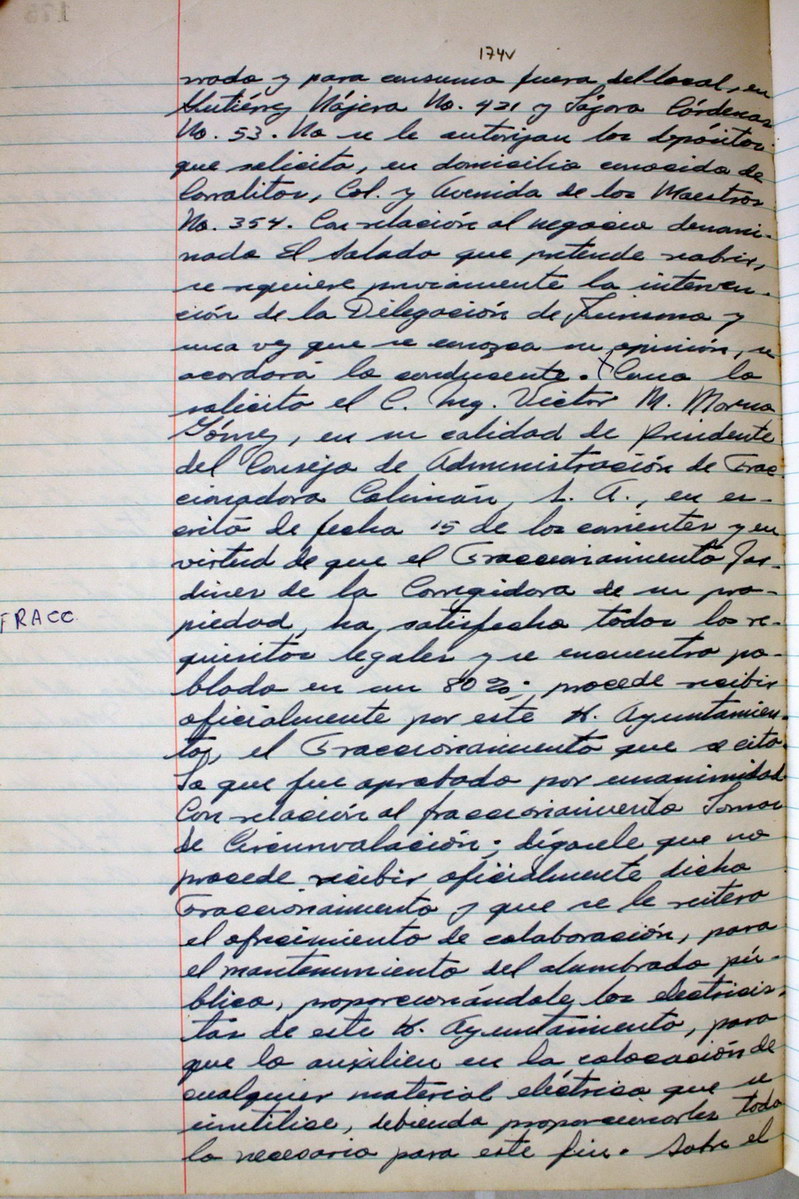 174v
rrado y para consumo fuera del local, en
Gutiérrez Nájera No. 421 y Lázaro Cárdenas
No. 53. No se le autorizan los depósitos
que solicita, en domicilio conocido de
Corralitos, Col. y Avenida de los Maestros
No. 354. Con relación al negocio denomi-
nado El Salado que pretende reabrir,
se requiere previamente la interven-
ción de la Delegación de Turismo y
una vez que se conozca su opinión, se
acordará lo conducente. Como lo
solicita el C. Ing. Víctor M. Moreno
Gómez, en su calidad de Presidente
del Consejo de Administración de Frac-
cionadora Colimán, S. A., en es-
crito de fecha 15 de los corrientes y en
virtud de que el Fraccionamiento Jar-
dines de la Corregidora de su pro-
FRACC.
piedad, ha satisfecho todos los re-
quisitos legales y se encuentra po-
blado en un 80%; procede recibir
oficialmente por este H. Ayuntamien-
to, el Fraccionamiento que se cita.
Lo que fue aprobado por unanimidad
Con relación al fraccionamiento Lomas
de Circunvalación; dígasele que no
procede recibir oficialmente dicho
Fraccionamiento y que se le reitera
el ofrecimiento de colaboración, para
el mantenimiento del alumbrado pú-
blico, proporcionándole los electricis-
tas de este H. Ayuntamiento, para
que lo auxilien en la colocación de
cualquier material eléctrico que se
inutilice, debiendo proporcionarles todo
lo necesario para este fin. Sobre el